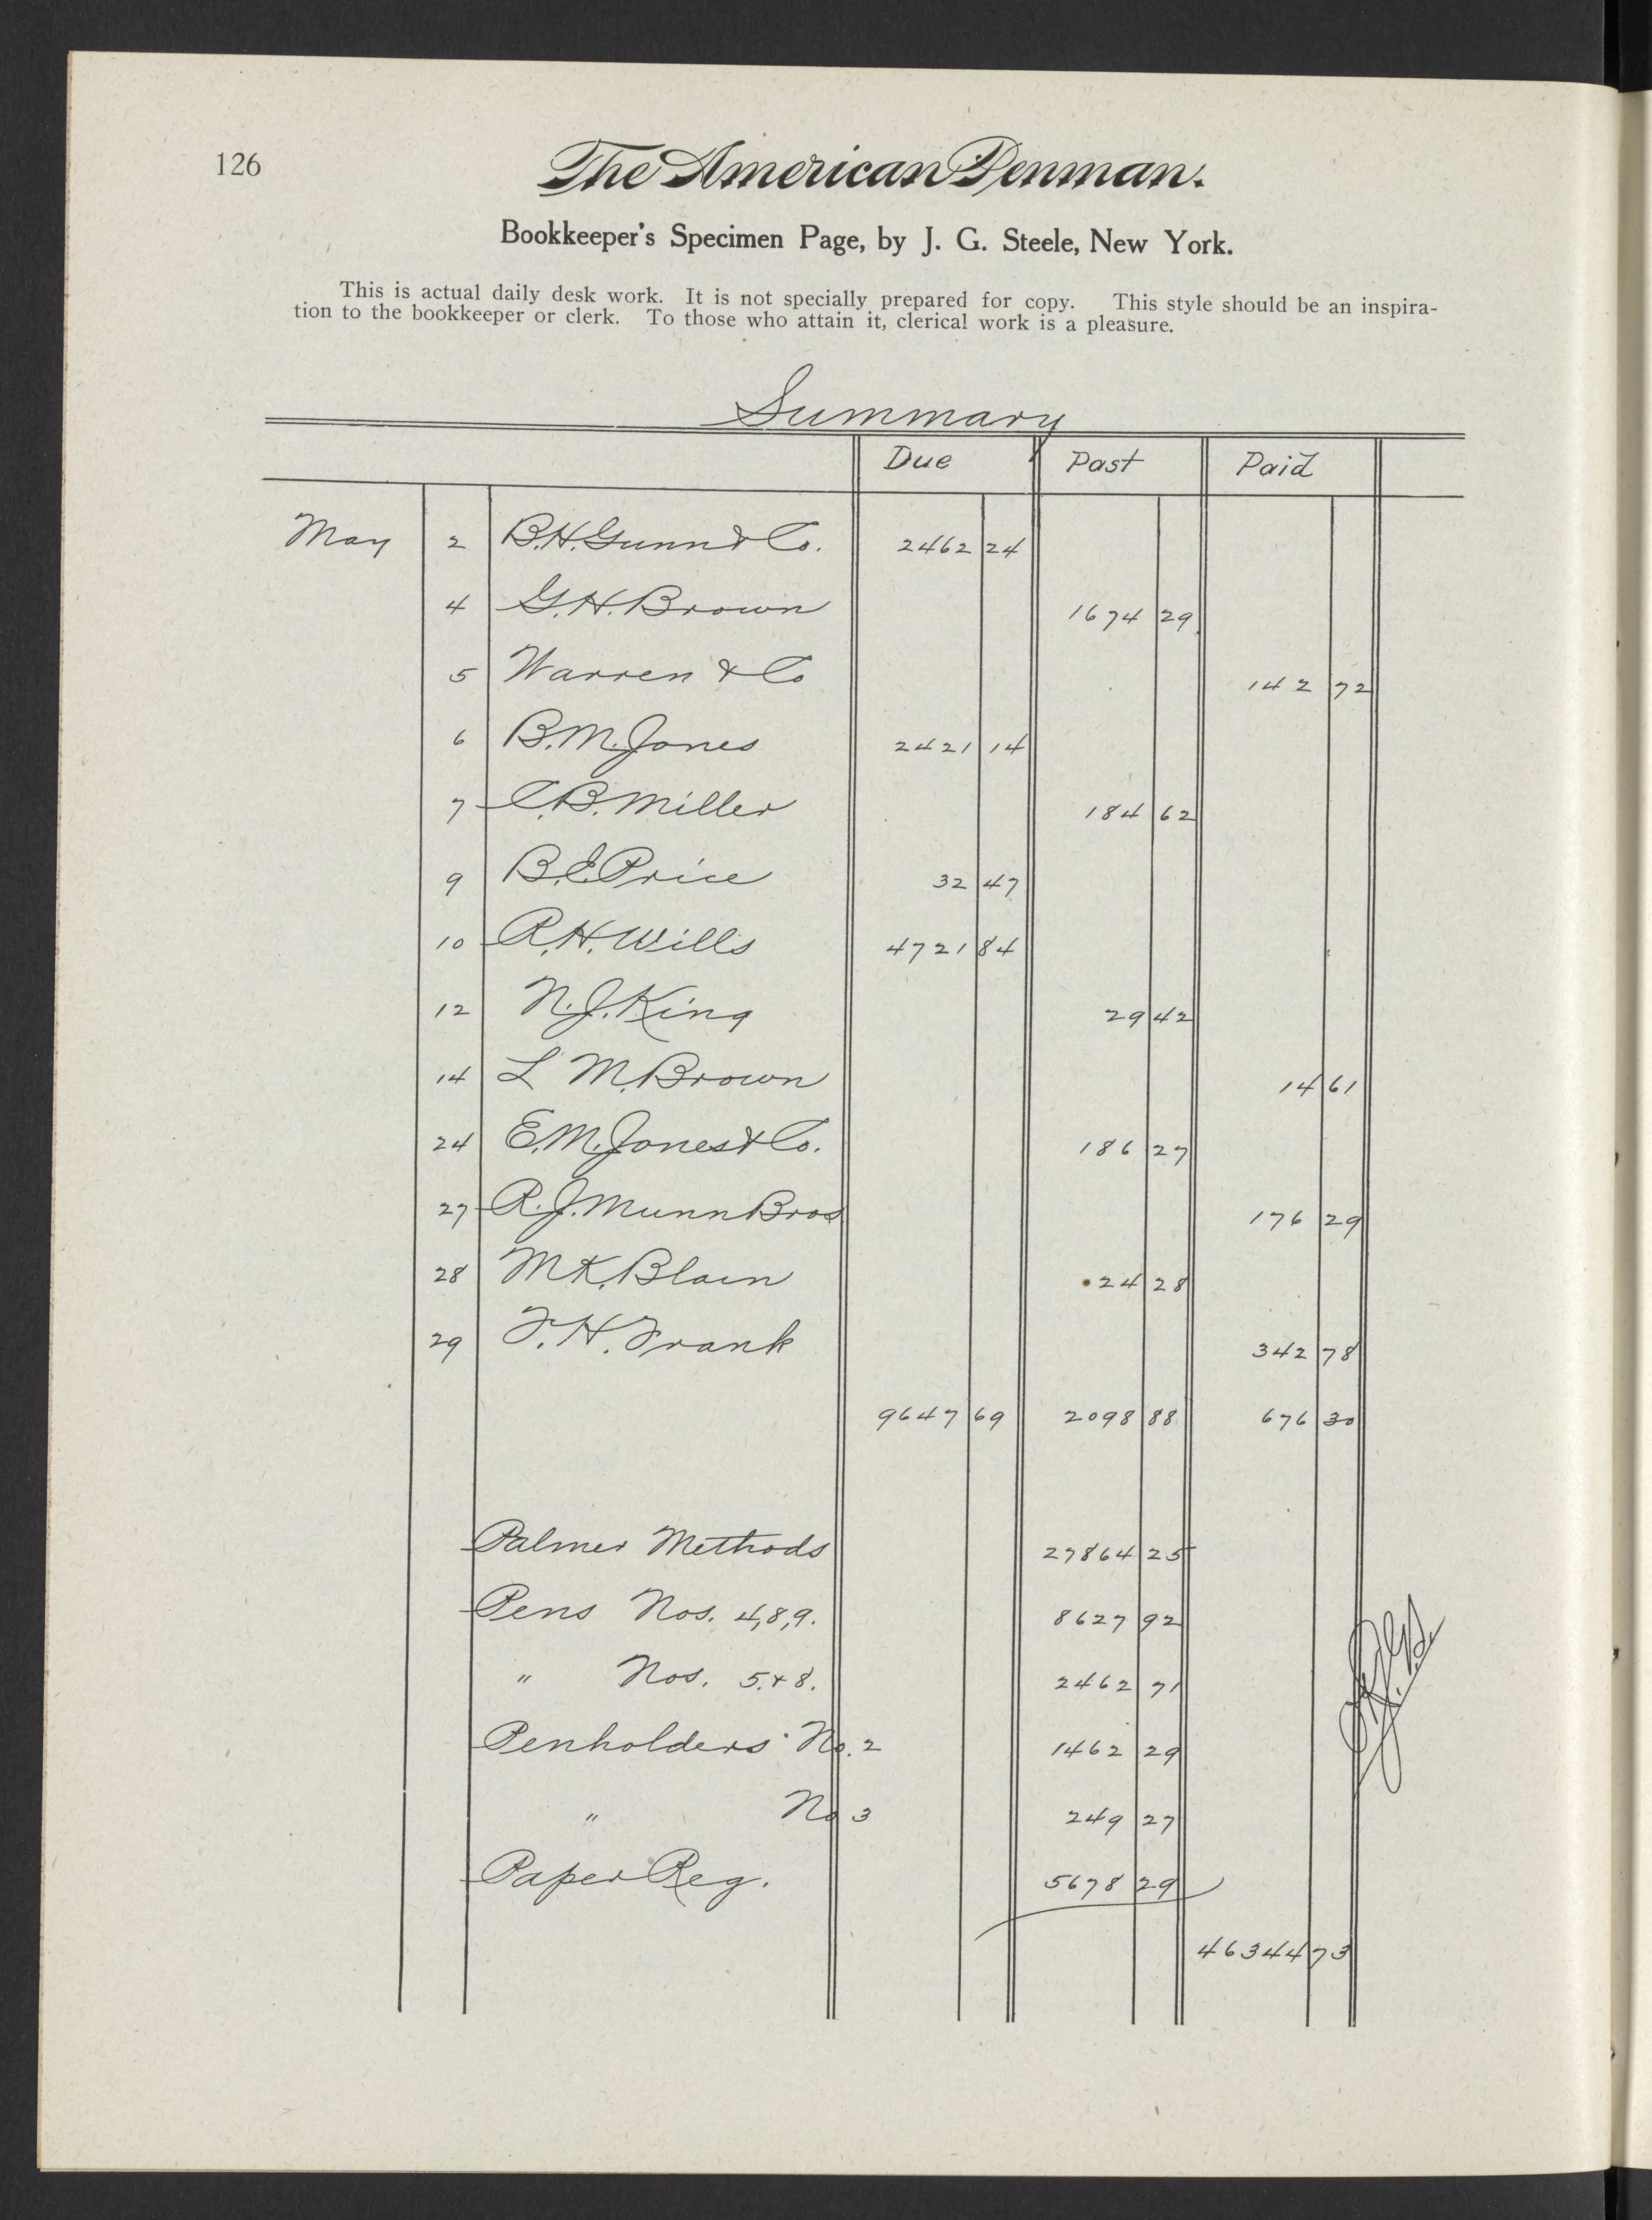 126
The American Penman.
Bookkeeper's Specimen Page, by J. G. Steele, New York.
This is actual daily desk work. It is not specially prepared for copy. This style should be an inspira-
tion to the bookkeeper or clerk. To those who attain it, clerical work is a pleasure.
Summary
Due Past Paid
May 2 B.H. Gunn & Co. 2462 24
4 G.H. Brown 1674 29
5 Warren & Co 142 72
6 B.M. Jones 2421 14
7 C.B. Miller 184 62
9 B.E. Price 32 47
10 R.H. Wills 4721 84
12 N.J. King 29 42
14 L M. Brown 14 61
24 E.M. Jones & Co. 186 27
27 R.J. Munn Bros 176 29
28 M K. Blain 24 28
29 F.H. Frank 342 78
9647 69 2098 88 676 30
Palmer Methods 27864 25
Pens Nos. 4,8,9. 8627 92
" Nos. 5.&8. 2462 71
Penholders No. 2 1462 29
" No 3 249 27
Paper Reg. 5678 29
46344 73